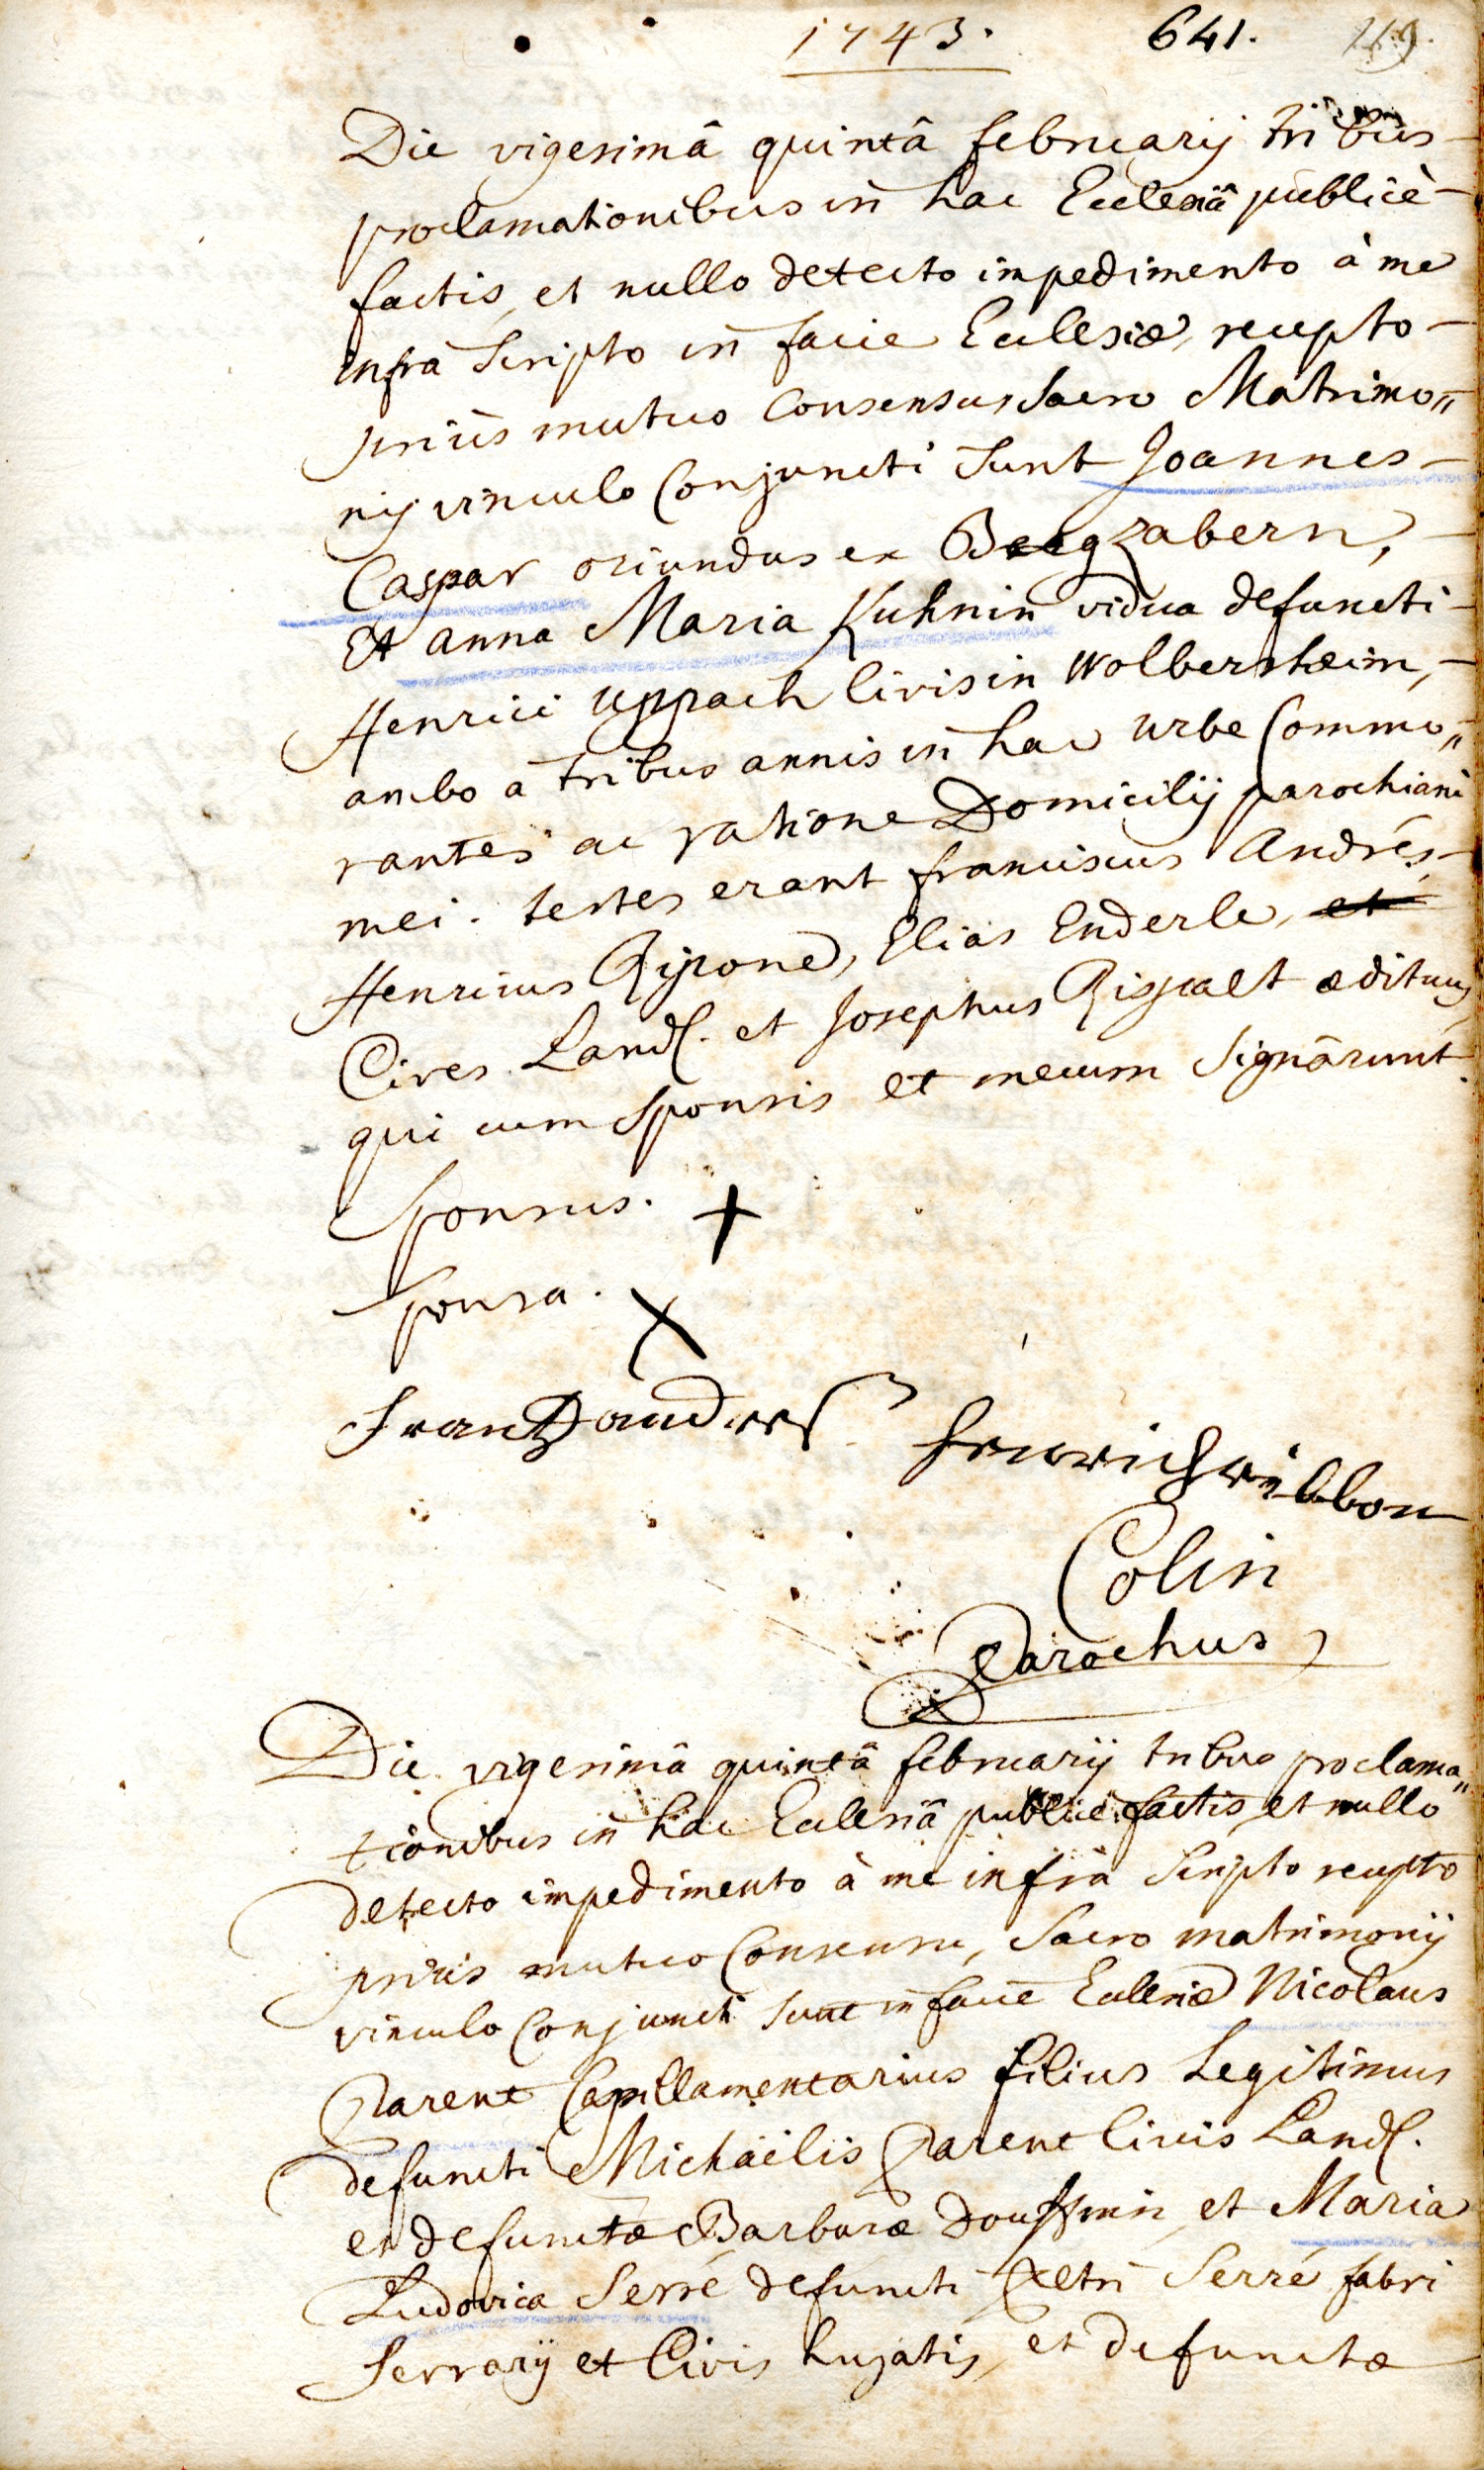 1743. 641. 219.
Die vigesimâ quintâ februarij tribus
proclamationibus in hac Ecclesiâ publicè
factis, et nullo detecto impedimento à me
infra scripto in facie Ecclesiæ, recepto
priùs mutuo Consensu, sacro Matrimo„
nij vinculo Conjuncti sunt Joannes
Caspar oriundus ex Bergzabern,
Et anna Maria Kuhnin vidua defuncti
Henrici Uppach Civis in Wolbersheim,
ambo a tribus annis in hac urbe Commo„
rantes ac ratione Domicilij parochiani
mei. testes erant franciscus Andrés,
Henricus Ripone, Elias Enderle, et
Cives Land. et Josephus Rigault ædituus,
qui cum sponsis et mecum signârunt.
Sponsus. +
Sponsa. X
Frantz andres
Henrich ribbon
Colin
Parochus
Die vigesimâ quintâ februarij tribus proclama„
tionibus in hac Ecclesiâ publicè factis, et nullo
detecto impedimento à me infrà scripto recepto
priùs mutuo Consensu, sacro matrimonij
vinculo Conjuncti sunt in facie Ecclesiæ Nicolaus
Parent Capillamentarius filius Legitimus
defuncti Michaëlis Parent Civis Land.
et defunctæ Barbaræ et Maria
Ludovica Serré defuncti Petri Serré fabri
Serrarij et Civis hujatis, et defunctæ